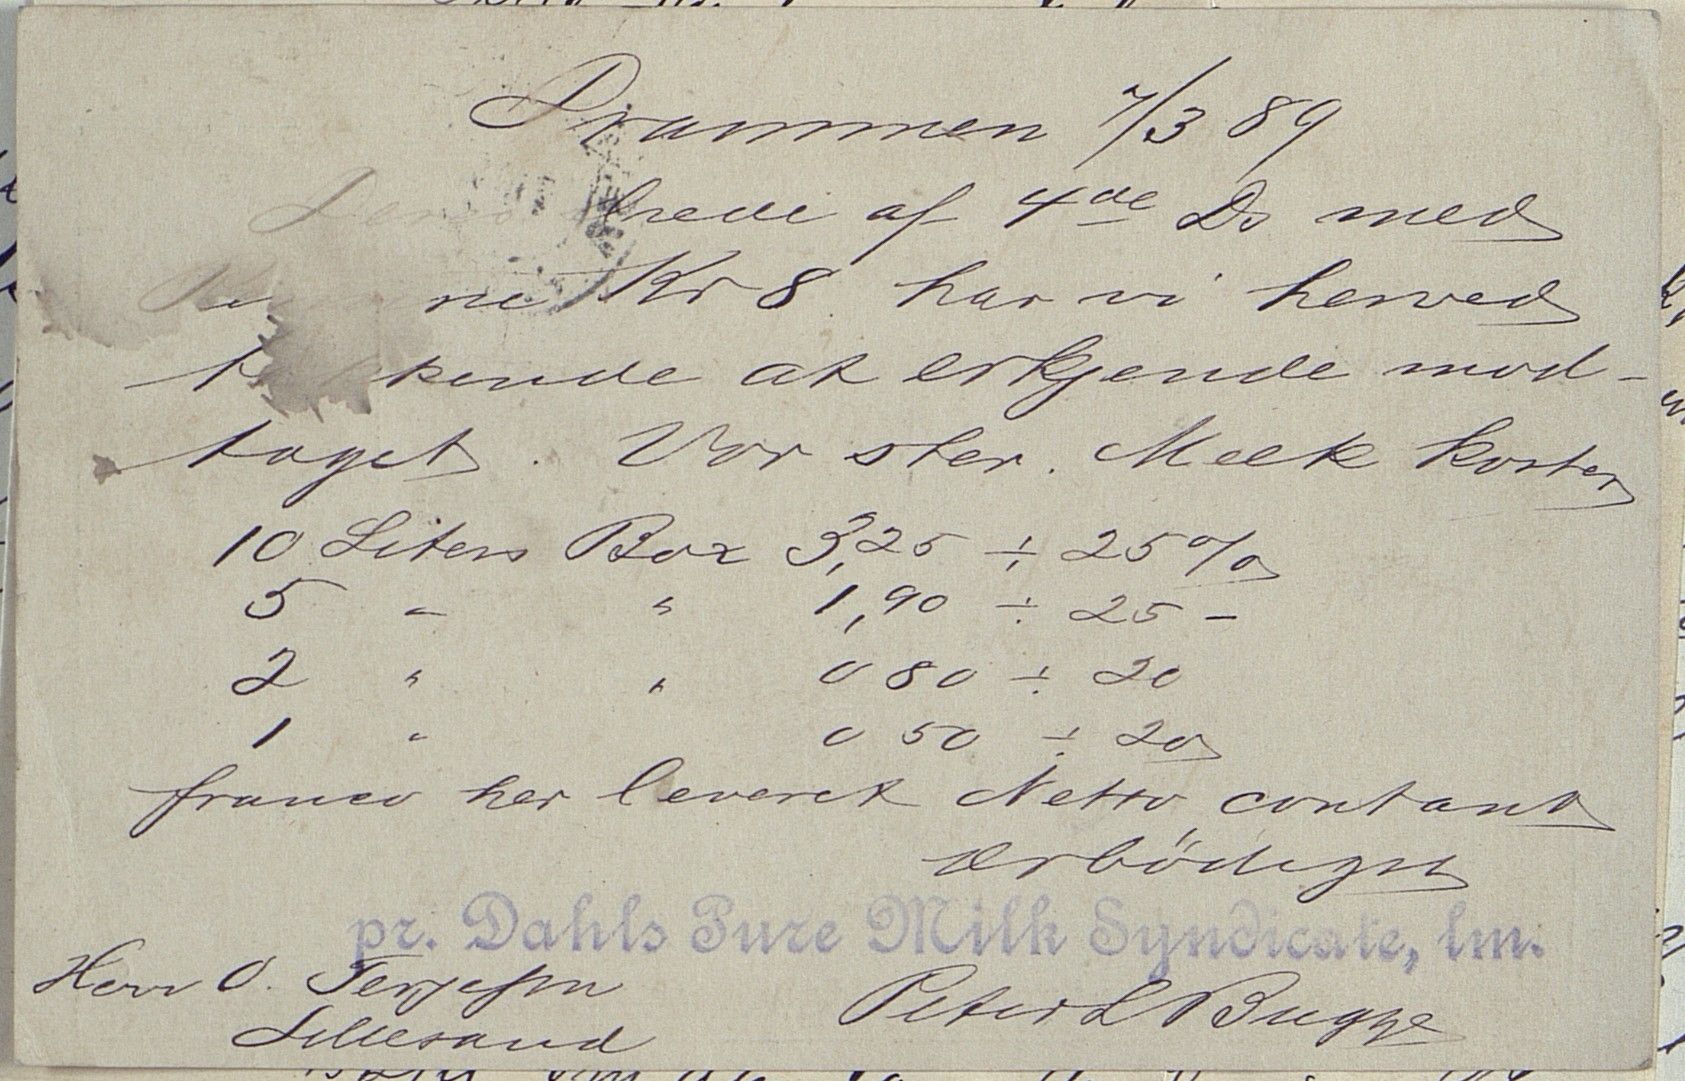 Drammen 7/3 89
Deres ærede af 4de Ds med
Kr 8. har vi herved
takkende at erkjende mod-
taget. Vor ster. Melk koster
10 Liters Box 3,25 ÷ 25%
5 - " 1,90 ÷ 25 -
2 " " 0 80 ÷ 20
1 " 0 50 ÷ 20
franco her leveret Netto contant
Ærbødigst
pr. Dahls Pure Milk Syndicate, lm.
Herr O. Terjesen
Lillesand
Peter L Bugge